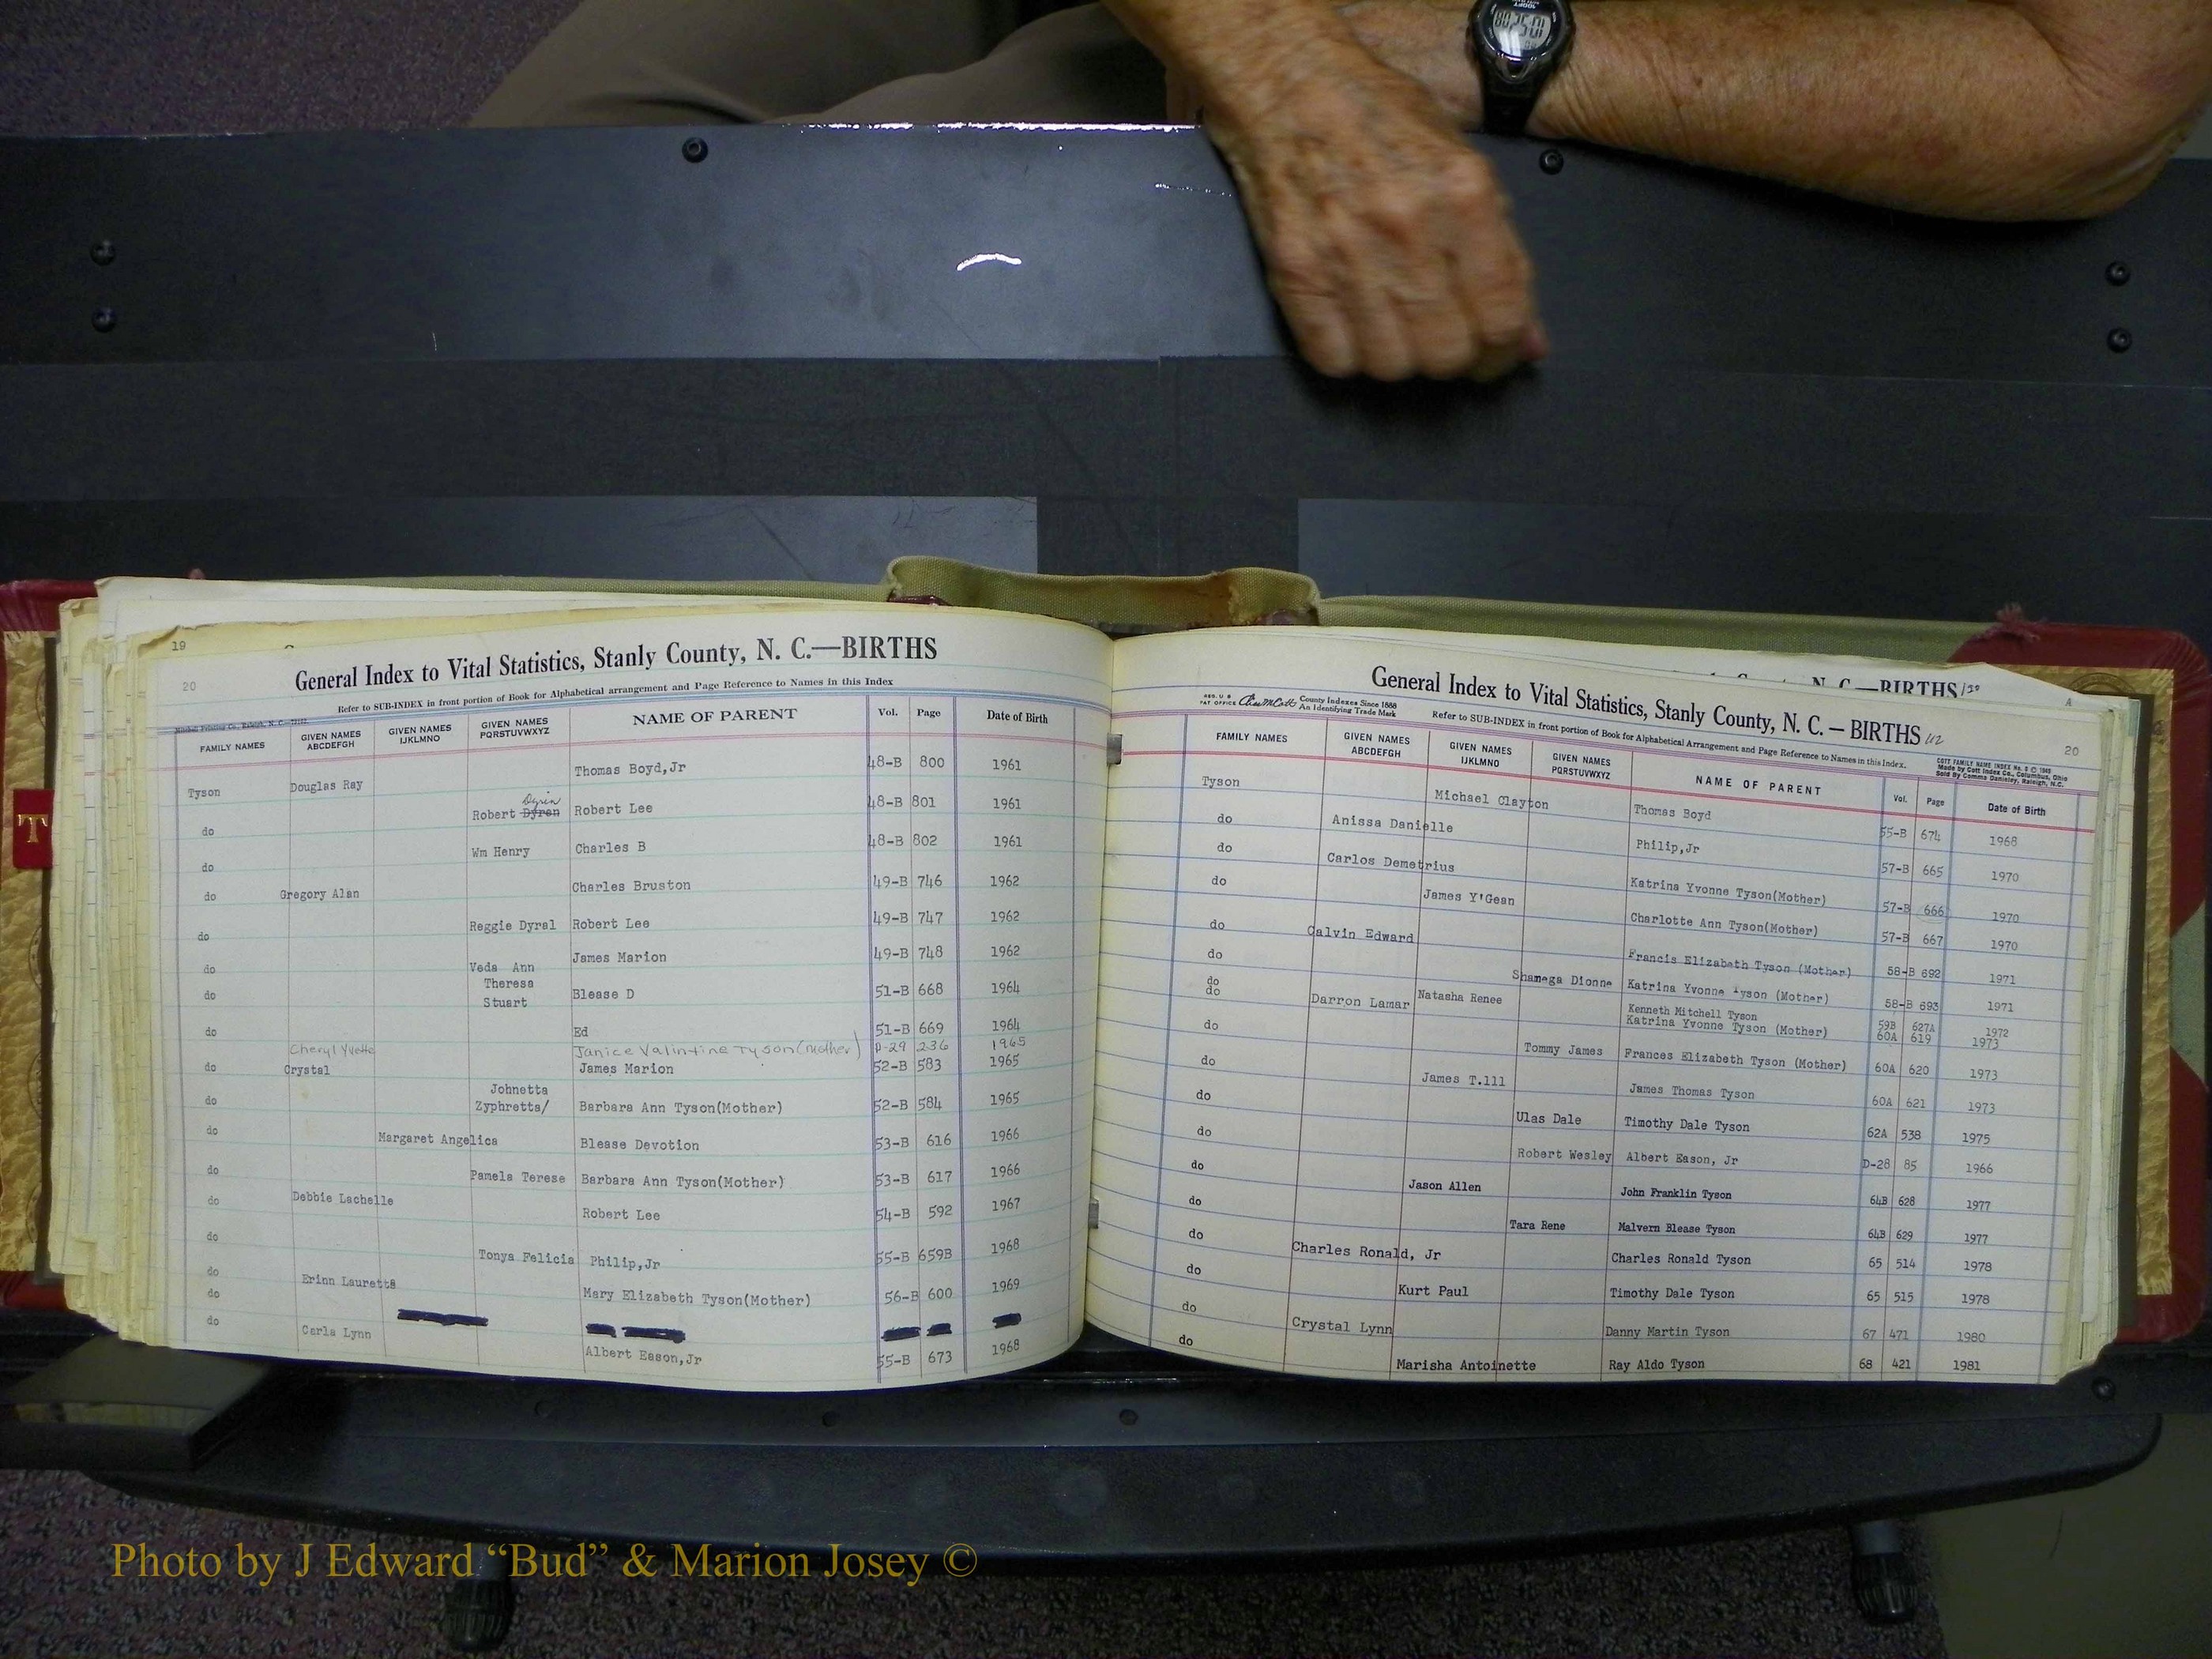 19
20
General Index to Vital Statistics, Stanly County, N. C.—BIRTHS
Refer to SUB-INDEX in front portion of Book for Alphabetical arrangement and Page Reference to Names in this Index
FAMILY NAMES GIVEN NAMES ABCDEFGH GIVEN NAMES IJKLMNO GIVEN NAMES PQRSTUVWXYZ NAME OF PARENT Vol. Page Date of Birth
Tyson Douglas Ray Thomas Boyd,Jr 48-B 800 1961
Dyrin
do Robert Dyran Robert Lee 48-B 801 1961
do Wm Henry Charles B 48-B 802 1961
do Gregory Alan Charles Bruston 49-B 746 1962
do Reggie Dyral Robert Lee 49-B 747 1962
do Veda Ann James Marion 49-B 748 1962
Theresa
do Stuart Blease D 51-B 668 1964
do Ed 51-B 669 1964
Cheryl Yvette Janice Valintine Tyson(mother) D-29 236 1965
do Crystal James Marion 52-B 583 1965
Johnetta
do Zyphretta/ Barbara Ann Tyson(Mother) 52-B 584 1965
do Margaret Angelica Blease Devotion 53-B 616 1966
do Pamela Terese Barbara Ann Tyson(Mother) 53-B 617 1966
do Debbie Lachelle Robert Lee 54-B 592 1967
do Tonya Felicia Philip,Jr 55-B 659B 1968
do Erinn Lauretta Mary Elizabeth Tyson(Mother) 56-B 600 1969
do
do Carla Lynn Albert Eason,Jr 55-B 673 1968
C—BIRTHS
A
General Index to Vital Statistics, Stanly County, N. C. — BIRTHS
20
County Indexes Since 1888
An Identifying Trade Mark
Refer to SUB-INDEX in front portion of Book for Alphabetical Arrangement and Page Reference to Names in this Index.
COTT FAMILY NAME INDEX
Made by Cott Index Co., Columbus, Ohio
FAMILY NAMES GIVEN NAMES ABCDEFGH GIVEN NAMES IJKLMNO GIVEN NAMES PQRSTUVWXYZ NAME OF PARENT Vol. Page Date of Birth
Tyson Michael Clayton Thomas Boyd 55-B 674 1968
do Anissa Danielle Philip,Jr 57-B 665 1970
do Carlos Demetrius Katrina Yvonne Tyson(Mother) 57-B 666 1970
do James Y'Gean Charlotte Ann Tyson(Mother) 57-B 667 1970
do Calvin Edward Francis Elizabeth Tyson (Mother) 58-B 692 1971
do Shamega Dionne Katrina Yvonne Tyson (Mother) 58-B 693 1971
do Natasha Renee Kenneth Mitchell Tyson 59B 627A 1972
do Darron Lamar Katrina Yvonne Tyson (Mother) 60A 619 1973
do Tommy James Frances Elizabeth Tyson (Mother) 60A 620 1973
do James T.lll James Thomas Tyson 60A 621 1973
do Ulas Dale Timothy Dale Tyson 62A 538 1975
do Robert Wesley Albert Eason, Jr D-28 85 1966
do Jason Allen John Franklin Tyson 64B 628 1977
do Tara Rene Malvern Blease Tyson 64B 629 1977
do Charles Ronald, Jr Charles Ronald Tyson 65 514 1978
do Kurt Paul Timothy Dale Tyson 65 515 1978
do Crystal Lynn Danny Martin Tyson 67 471 1980
do Marisha Antoinette Ray Aldo Tyson 68 421 1981
T
Photo by J Edward “Bud” & Marion Josey ©